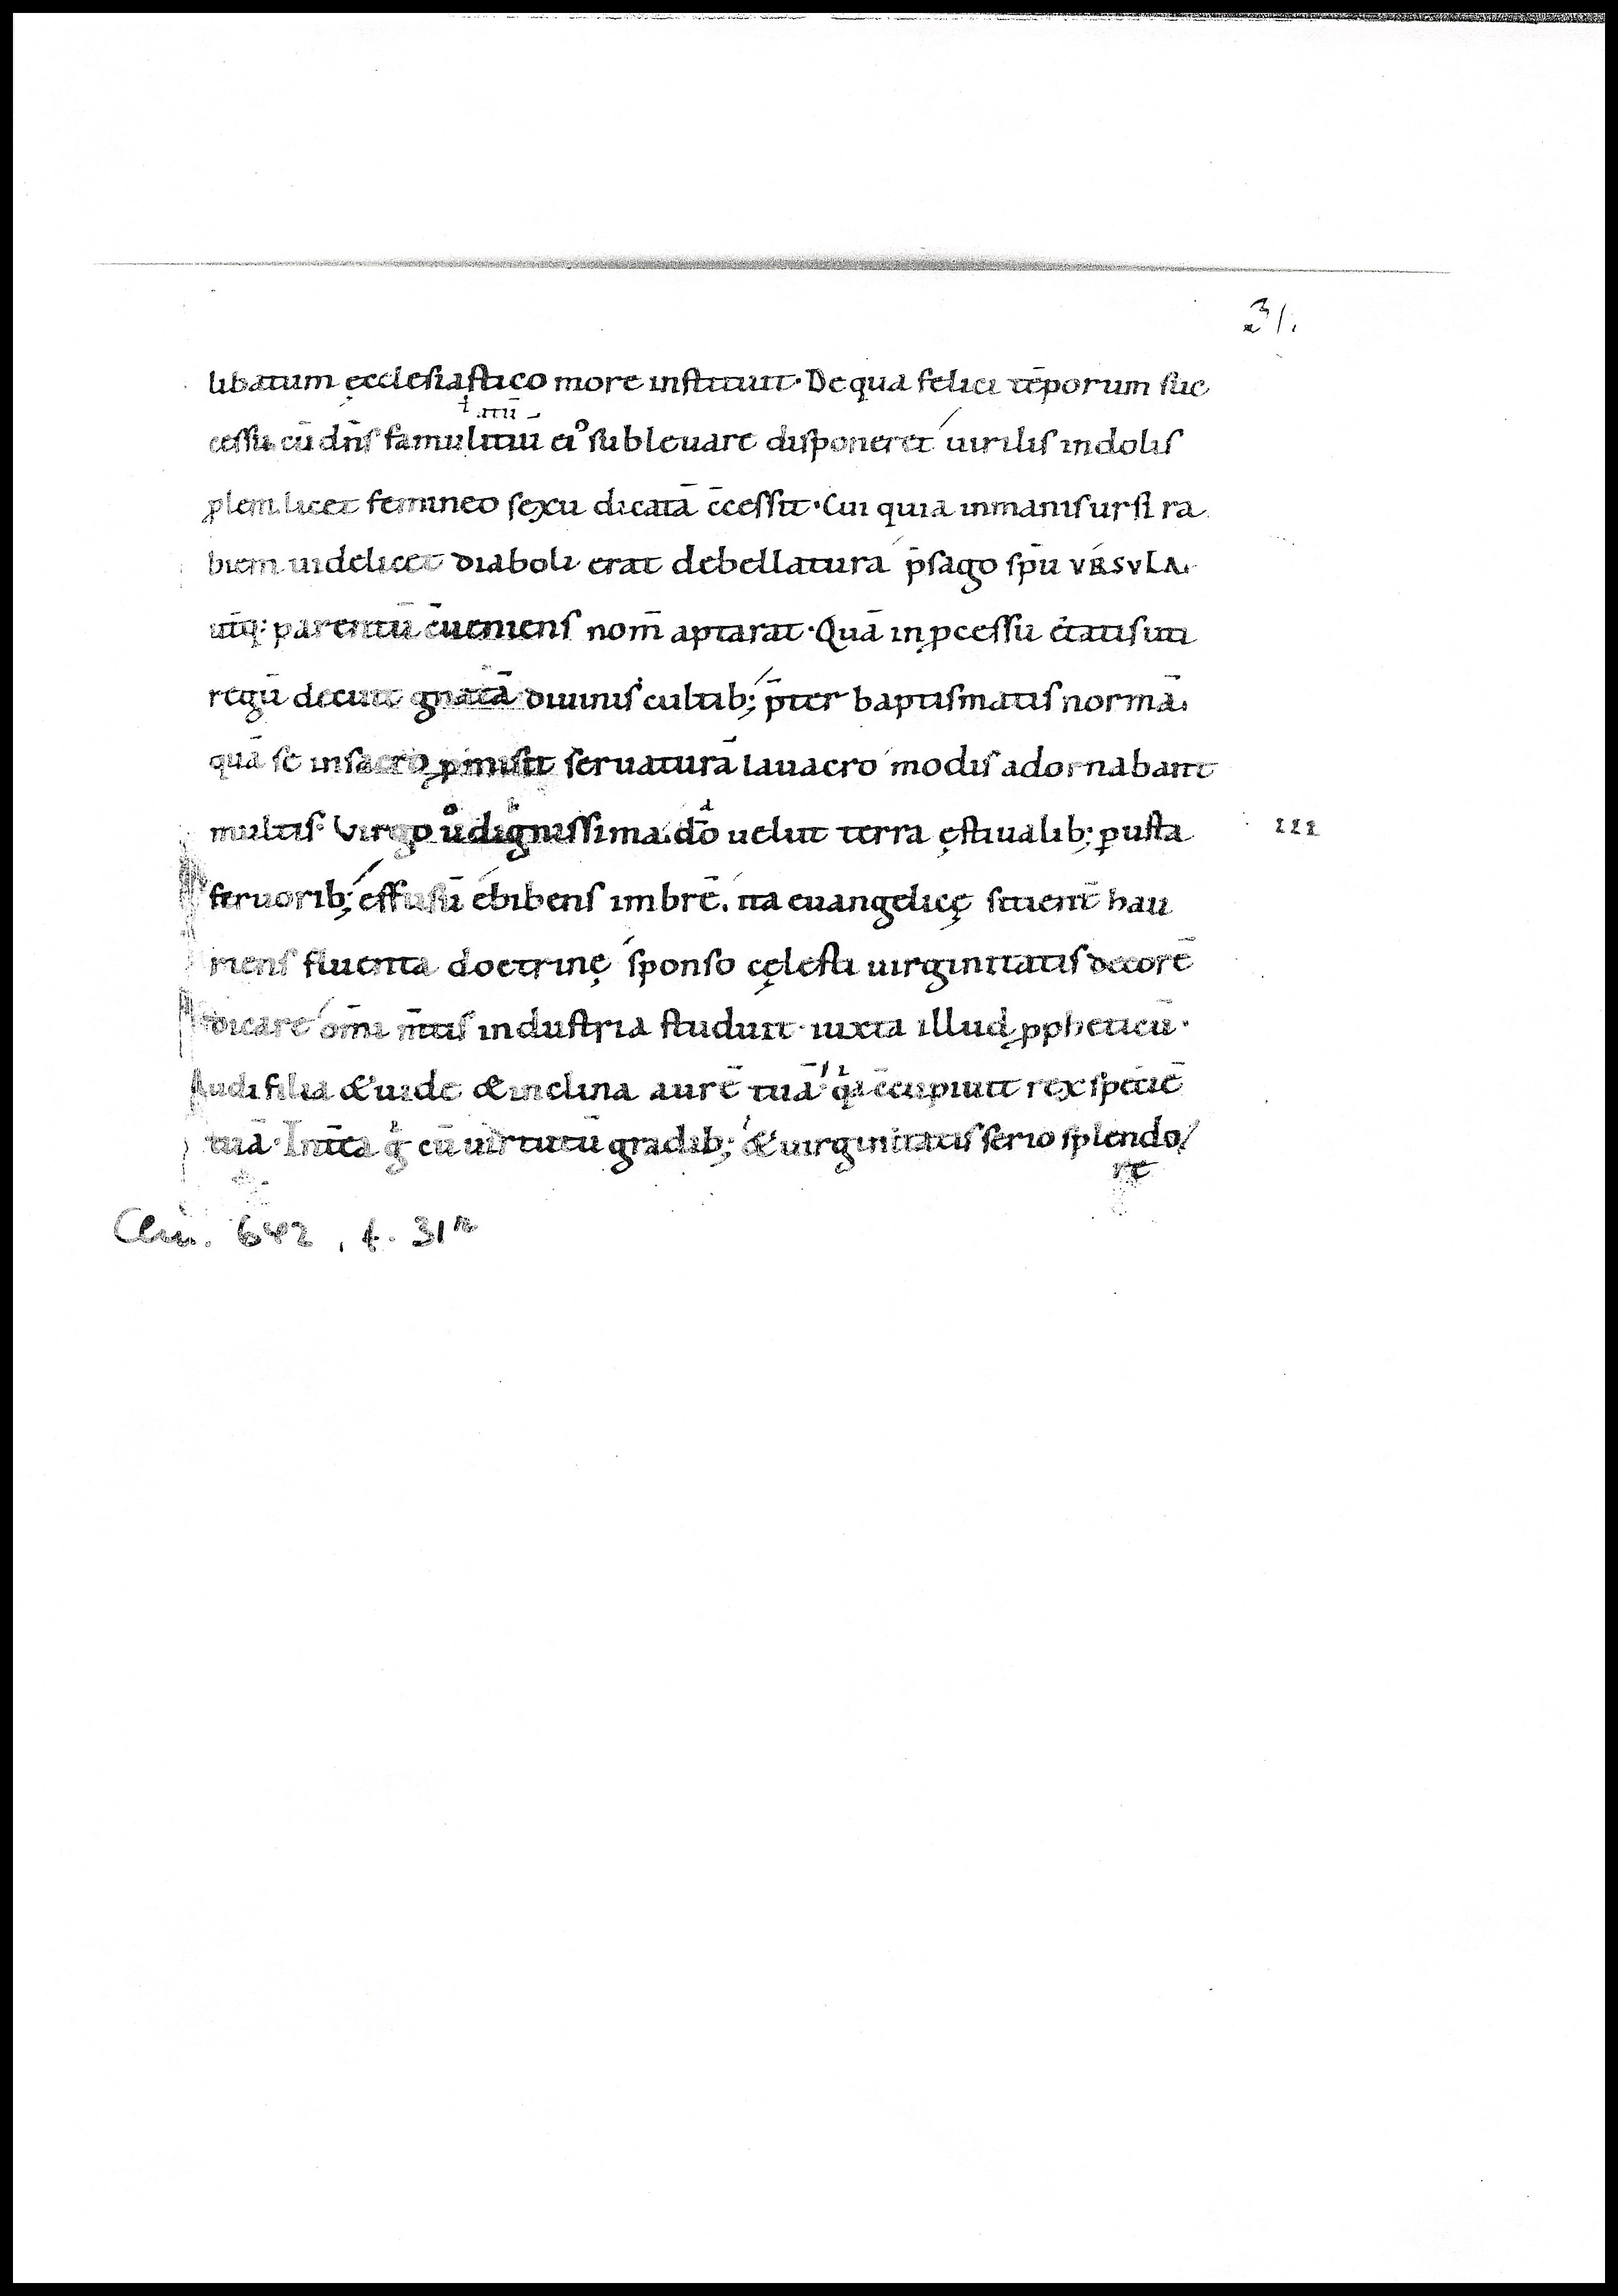 31.
libatum ęcclesiastico more instituit· De qua felici tēporum suc
cessu cū dn̄s famulitiū ei⁹ subleuare disponeret uirilis indolis
plem licet femineo sexu dicatā c̄cessit· Cui quia inmanis ursi ra
biem uidelicet diaboli erat debellatura p̄sago sp̄u VRSVLA.
utiq; parentū c̄ueniens nom̄ aptarat· Quā in ꝓcessu etatis uti
regū decuit gnatā diuinis cultib; p̄ter baptismatis normā.
quā se in sacro ꝓmisit seruaturā lauacro modis adornabant
multis· Virgo uͦ dignissima dō uelut terra ęstiualib; ꝑusta
feruorib; effusū ebibens imbrē. ita euangelicę sitient̄ hau
riens fluenta doctrinę sponso cęlesti uirginitatis decorē
dicare om̄i m̄tis industria studuit· iuxta illud ꝓpheticū·
Audi filia & uide & inclina aurē tuā· qͥa c̄cupiuit rex speciē
tuā· Int̄ta gͦ cū uirtutū gradib; & uirginitatis serio splendo/
re
III
Clm. 642, f. 31r